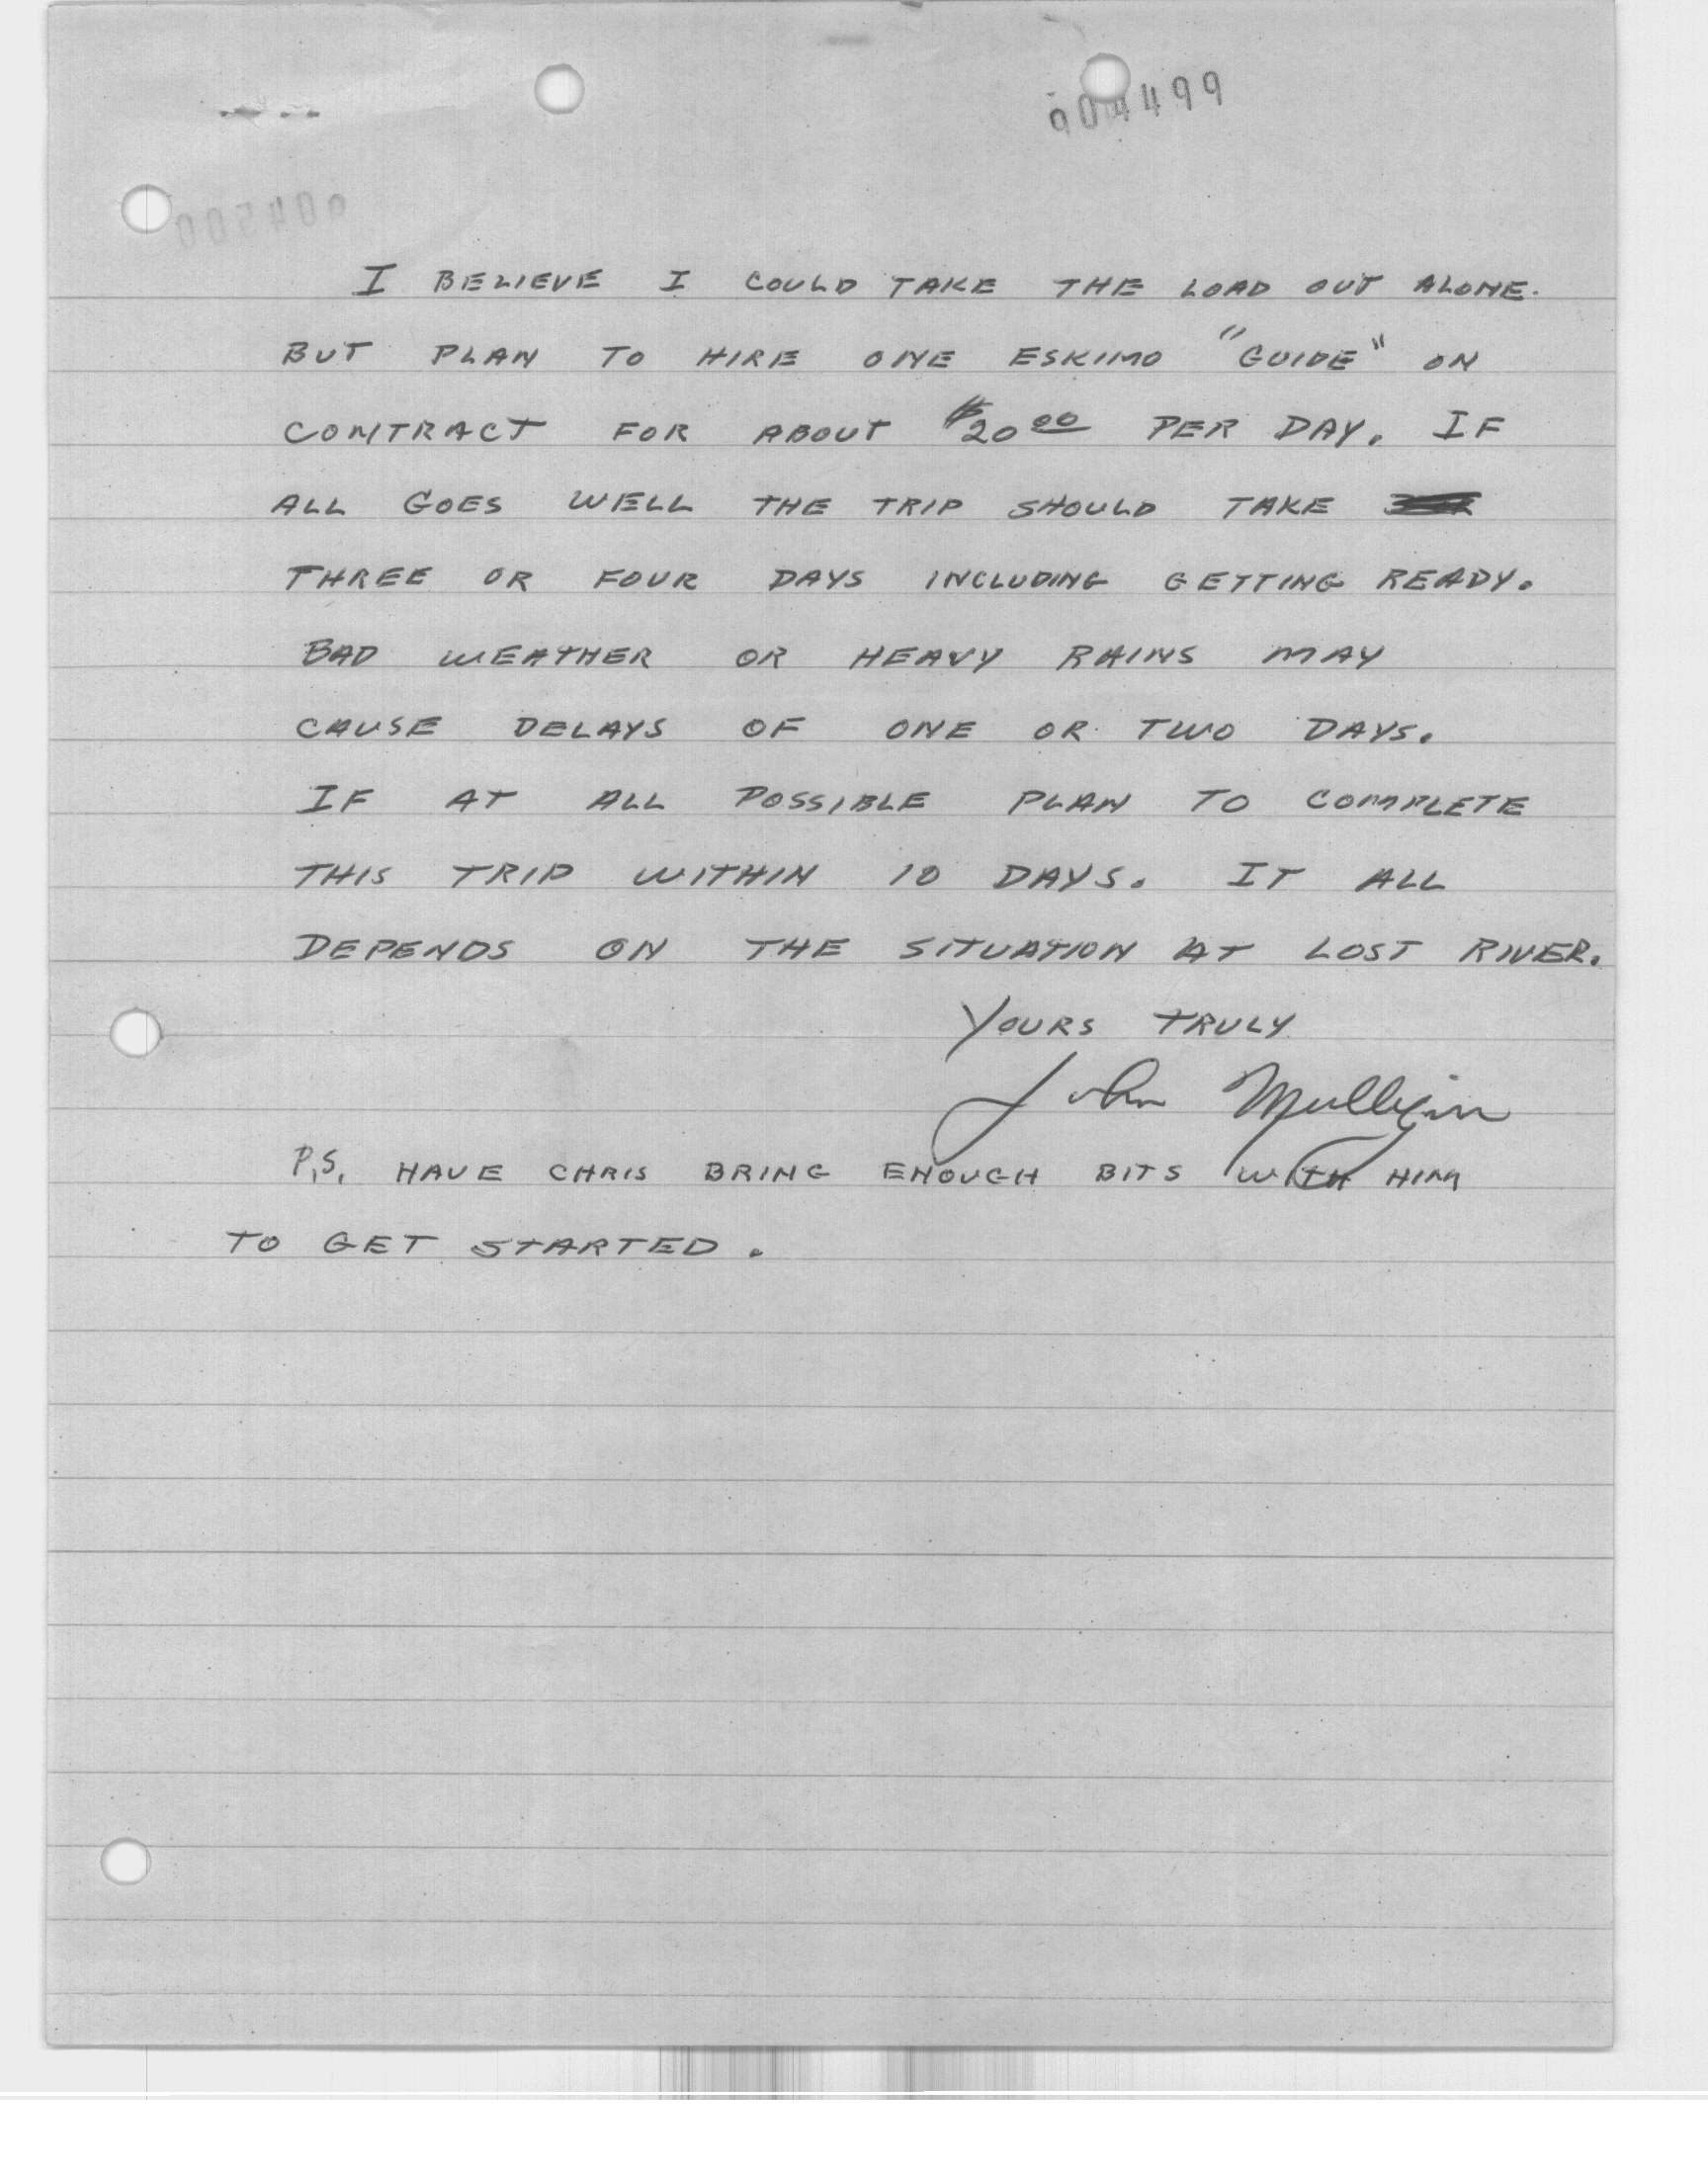 904499
004500
I BELIEVE I COULD TAKE THE LOAD OUT ALONE.
BUT PLAN TO HIRE ONE ESKIMO "GUIDE" ON
CONTRACT FOR ABOUT $20 00 PER DAY. IF
ALL GOES WELL THE TRIP SHOULD TAKE
THREE OR FOUR DAYS INCLUDING GETTING READY.
BAD WEATHER OR HEAVY RAINS MAY
CAUSE DELAYS OF ONE OR TWO DAYS.
IF AT ALL POSSIBLE PLAN TO COMPLETE
THIS TRIP WITHIN 10 DAYS. IT ALL
DEPENDS ON THE SITUATION AT LOST RIVER.
YOURS TRULY
John Mulligan
P.S. HAVE CHRIS BRING ENOUGH BITS WITH HIM
TO GET STARTED.